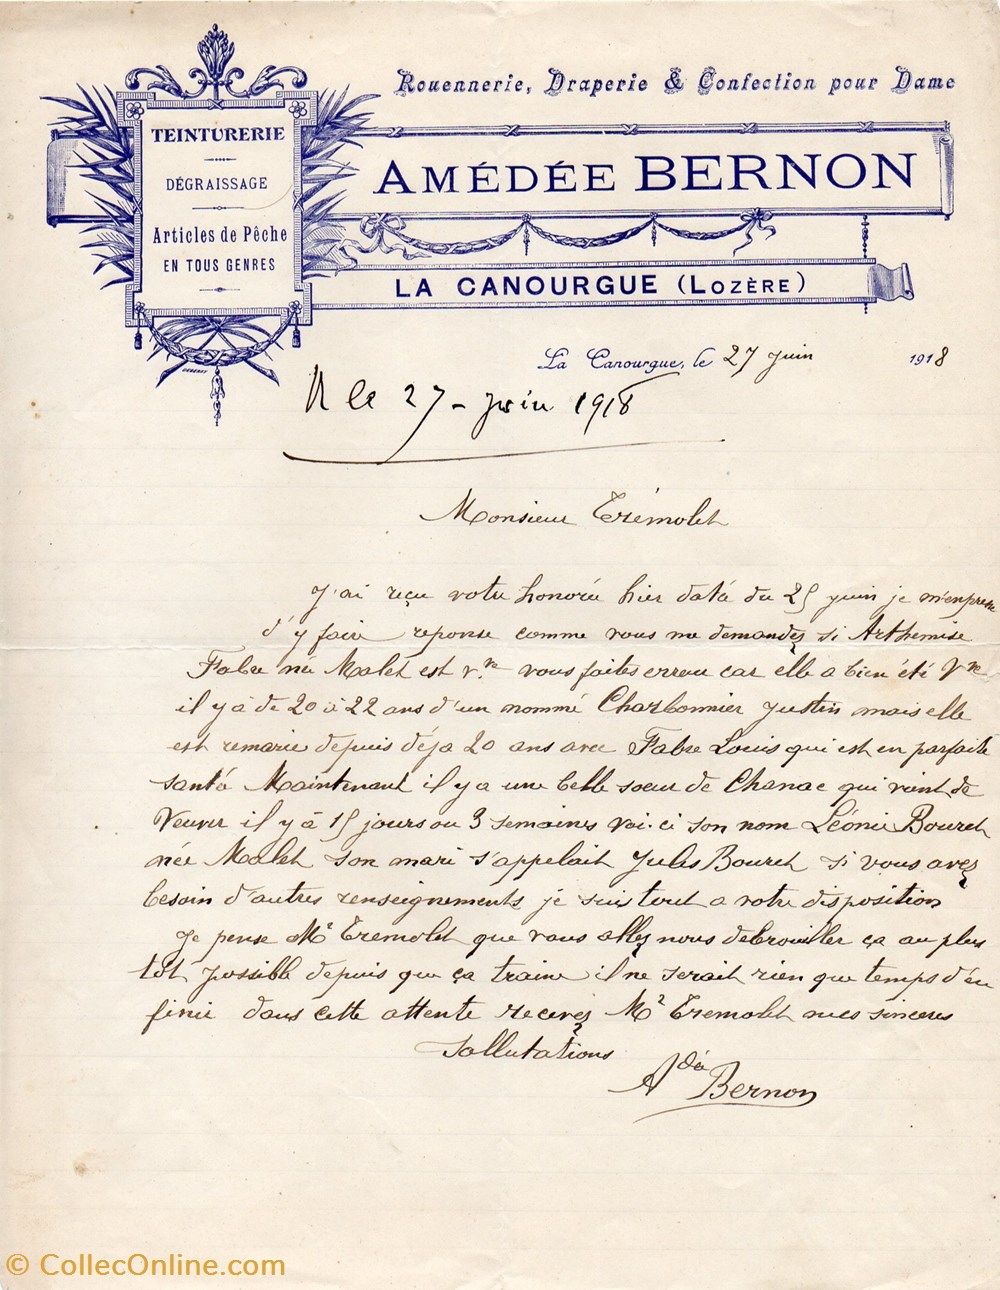 Rouennerie, Draperie & Confection pour Dame
TEINTURERIE
DÉGRAISSAGE
Articles de Pêche
EN TOUS GENRES
AMÉDÉE BERNON
LA CANOURGUE (LOZÈRE)
La Canourgue, le 27 juin 1918
R le 27 - juin 1918
Monsieur Trémolet
J'ai reçu votre honorée hier daté du 25 juin je m'enpresse
d'y faire reponse comme vous me demandez si Arthemise
Fabre née Malet est Vve vous faites erreur car elle a bien été Vve
il y a de 20 à 22 ans d'un nommé Charbonnier Justin mais elle
est remarie depuis déja 20 ans avec Fabre Louis qui est en parfaite
santé Maintenant il y a une belle soeur de Chanac qui vient de
Veuver il y à 15 jours ou 3 semaines voi-ci son nom Léonie Bouret
née Malet son mari s'appelait Jules Bouret si vous avez
besoin d'autres renseignements je suis tout a votre disposition
Je pense Mr Tremolet que vous allez nous debrouiller ça au plus
tot possible depuis que ça traine il ne serait rien que temps d'en
finir dans cette attente recevez Mr Tremolet mes sinceres
sallutations
Adée Bernon
© CollecOnline.com